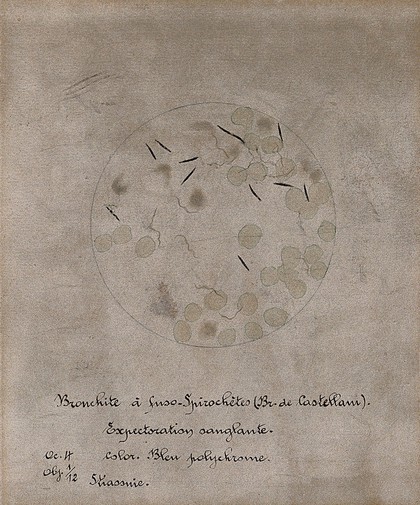 Bronchite à fuso-Spirochètes (Br. de Castellani).
Expectoration sanglante.
Oc. 4 Color. Bleu polychrome.
Obj. 1/12